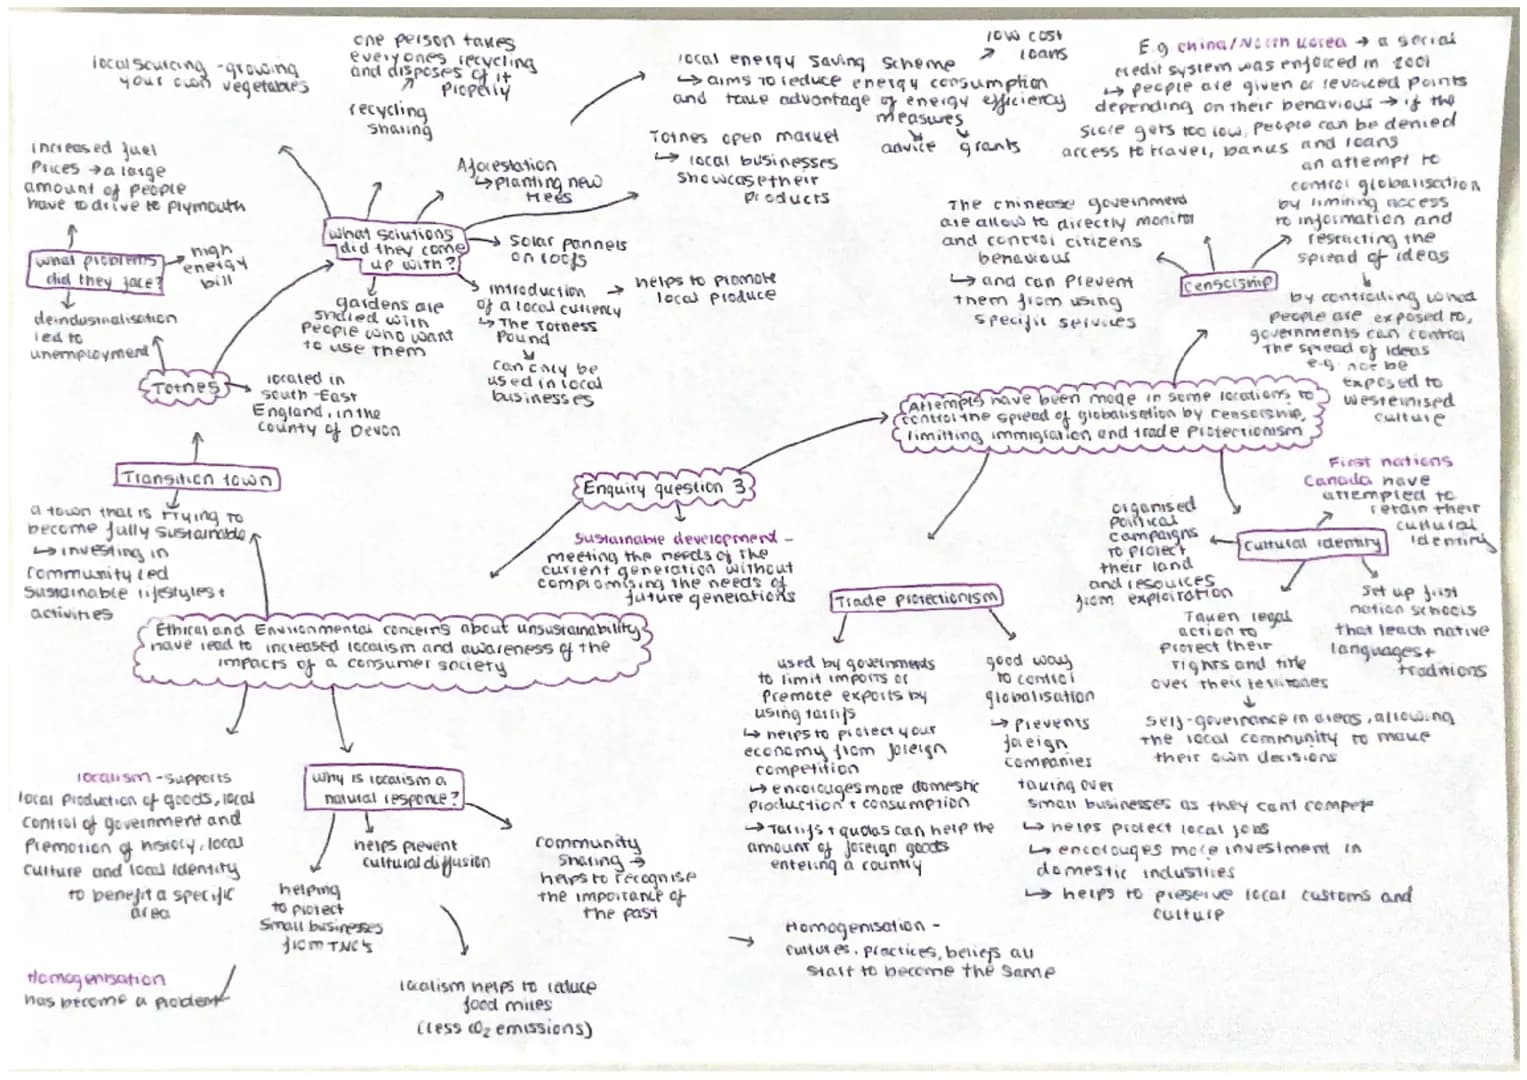 local sourcing - growing
your own vegetables
one person takes
everyones recycling
and disposes of it
properly
recycling
sharing
local energy saving scheme
→ low cost
loans
↳ aims to reduce energy consumption
and take advantage of energy efficiency
measures
advice grants
E.g china/North Korea → a social
credit system was enforced in 2001
↳ people are given or revoked points
depending on their behaviour → if the
score gets too low, people can be denied
access to travel, banks and loans
Increased fuel
Prices → a large
amount of people
have to drive to plymouth
Aforestation
↳ planting new
trees
Totnes open market
↳ local businesses
showcase their
products
what problems
did they face?
high
energy
bill
deindustrialisation
led to
unemployment
what solutions
did they come
up with?
solar pannels
on roofs
introduction
of a local currency
↳ The Totness
Pound
can only be
used in local
businesses
helps to promote
local produce
gardens are
shared with
people who want
to use them
Totnes
located in
south-East
England, in the
county of Devon
Transition town
a town that is trying to
become fully sustainable
↳ investing in
community led
sustainable lifestyles +
activities
The chinease government
are allow to directly monitor
and control citizens
behavious
↳ and can prevent
them from using
specific services
censorship
an attempt to
control globalisation
by limiting access
to information and
restricting the
spread of ideas
by controlling what
people are exposed to,
governments can control
the spread of ideas
e.g. not be
exposed to
westernised
culture
Attempts have been made in some locations to
control the spread of globalisation by censorship,
limitting immigration and trade protectionism
Enquiry question 3
Sustainable development -
meeting the needs of the
current generation without
compromising the needs of
future generations
Ethical and Environmental concerns about unsustainability
have lead to increased localism and awareness of the
impacts of a consumer society
First nations
Canada have
attempted to
retain their
cultural
identity
Cultural identity
organised
political
campaigns
to protect
their land
and resources
from exploration
Taken legal
action to
protect their
rights and title
over their territories
self-governance in areas, allowing
the local community to make
their own decisions
Set up first
nation schools
that teach native
languages +
traditions
Trade protectionism
used by governments
to limit imports or
promote exports by
using tarrifs
↳ helps to protect your
economy from foreign
competition
↳ encorouges more domestic
production + consumption
→ Tarrifs + quotas can help the
amount of foreign goods
entering a country
good way
to control
globalisation
→ prevents
foreign
companies
taking over
small businesses as they cant compete
↳ helps protect local jobs
↳ encorouges more investment in
domestic industries
↳ helps to preserve local customs and
culture
localism - supports
local production of goods, local
control of government and
Promotion of history, local
culture and local identity
to benefit a specific
area
why is localism a
natural responce?
helping
to protect
small businesses
from TNC's
helps prevent
cultural diffusion
community
sharing →
helps to recognise
the importance of
the past
localism helps to reduce
food miles
(less CO₂ emissions)
Homogenisation
has become a problem
→ Homogenisation -
cultures, practices, beliefs all
start to become the same